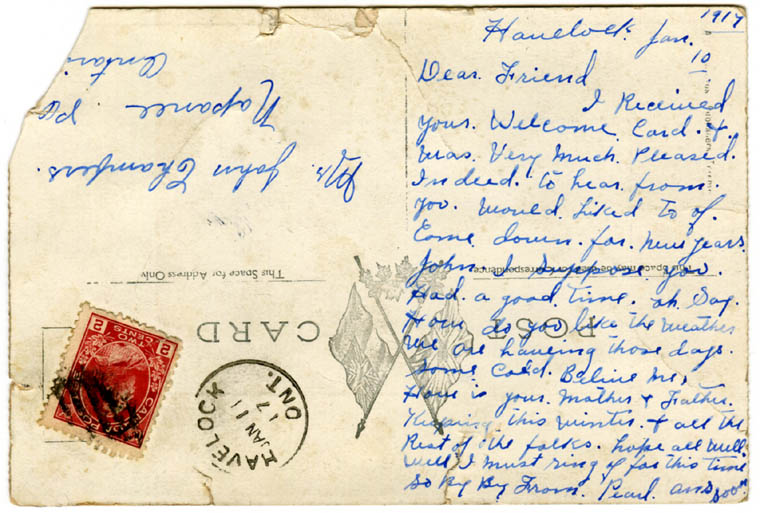 1917
Havelock. Jan.
10
Dear. Friend
I Received
yours. Welcome. Card. &.
Was. Very Much. Pleased.
Indeed. to hear. from.
you. Would. Liked to of.
Come down. for. New years.
John. I Suppose you.
Had. a good. time. oh Say.
How do you like the weather
We are haveing those days.
Some Cold. Belive Me,
How is your. Mother & Father.
Keeping this winter. & all the
Rest of the folks. hope all well.
Well I must ring of for this time
So By By From. Pearl. ans
Mr. John Chambers.
Napanee. PO
Ontari
This Space for Address Only
POST CARD
TWO CENTS
2 2
HAVELOCK
JAN 11
17
ONT.